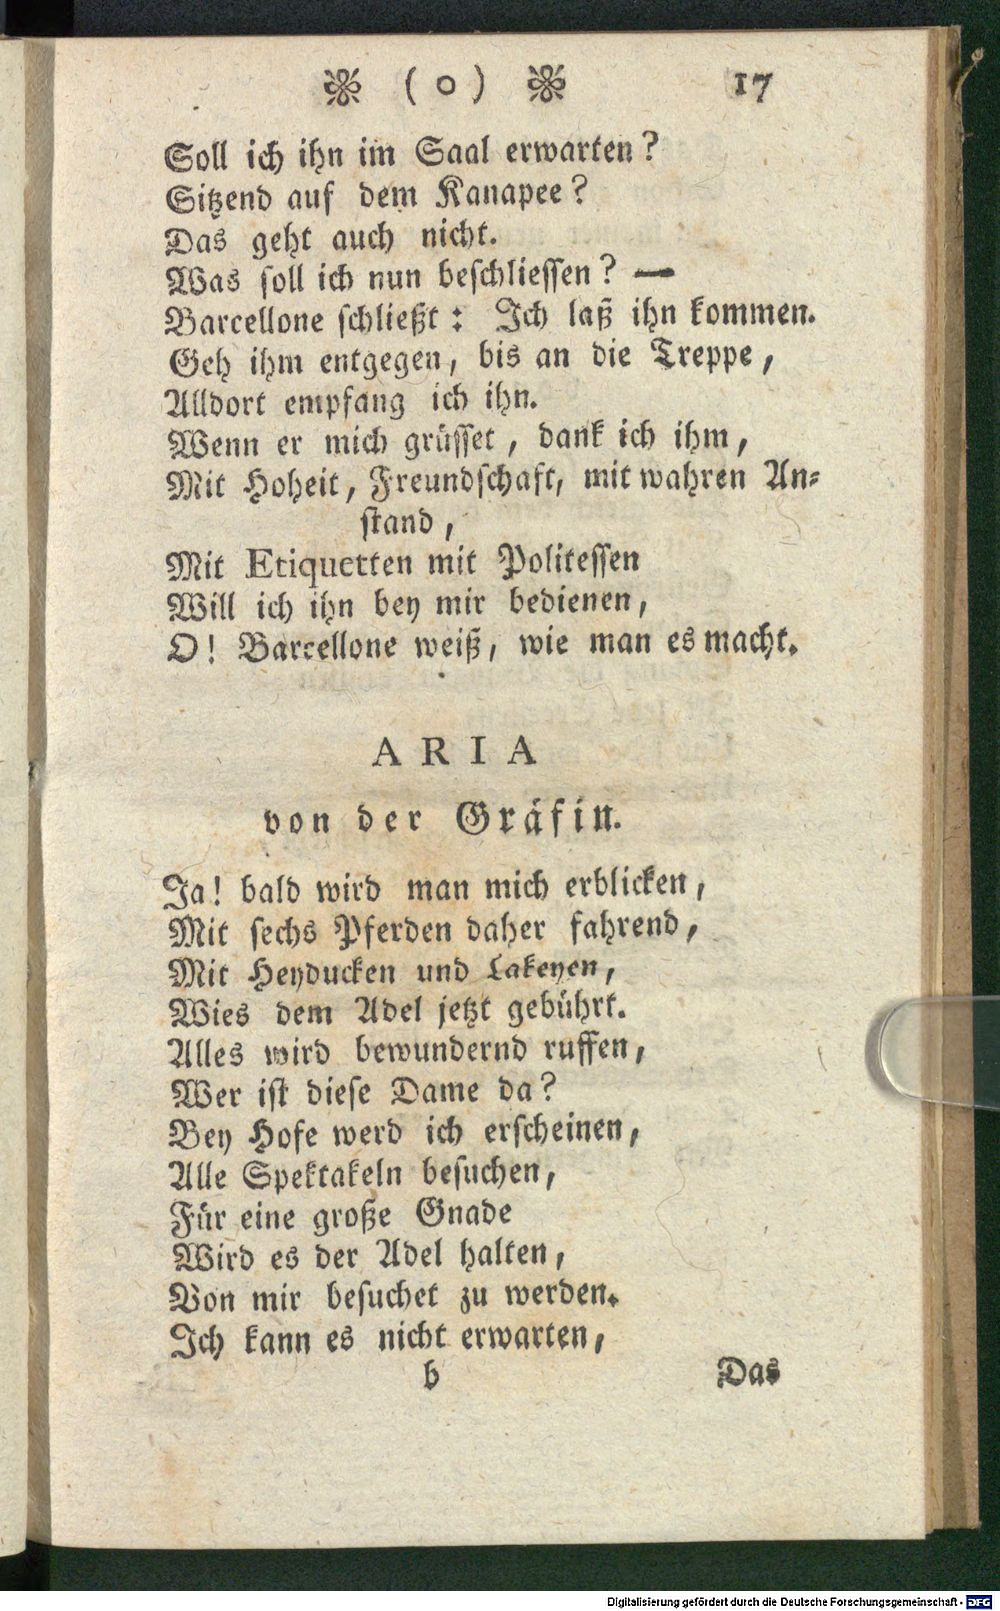 ( o ) 17
Soll ich ihn im Saal erwarten?
Sitzend auf dem Kanapee?
Das geht auch nicht.
Was soll ich nun beschliessen? —
Barcellone schließt: Ich laß ihn kommen.
Geh ihm entgegen, bis an die Treppe,
Alldort empfang ich ihn.
Wenn er mich grüsset, dank ich ihm,
Mit Hoheit, Freundschaft, mit wahren An-
stand,
Mit Etiquetten mit Politessen
Will ich ihn bey mir bedienen,
O! Barcellone weiß, wie man es macht.
ARIA
von der Gräfin.
Ja! bald wird man mich erblicken,
Mit sechs Pferden daher fahrend,
Mit Heyducken und Lakeyen,
Wies dem Adel jetzt gebührt.
Alles wird bewundernd ruffen,
Wer ist diese Dame da?
Bey Hofe werd ich erscheinen,
Alle Spektakeln besuchen,
Für eine große Gnade
Wird es der Adel halten,
Von mir besuchet zu werden.
Ich kann es nicht erwarten,
b Das
Digitalisierung gefördert durch die Deutsche Forschungsgemeinschaft - DFG